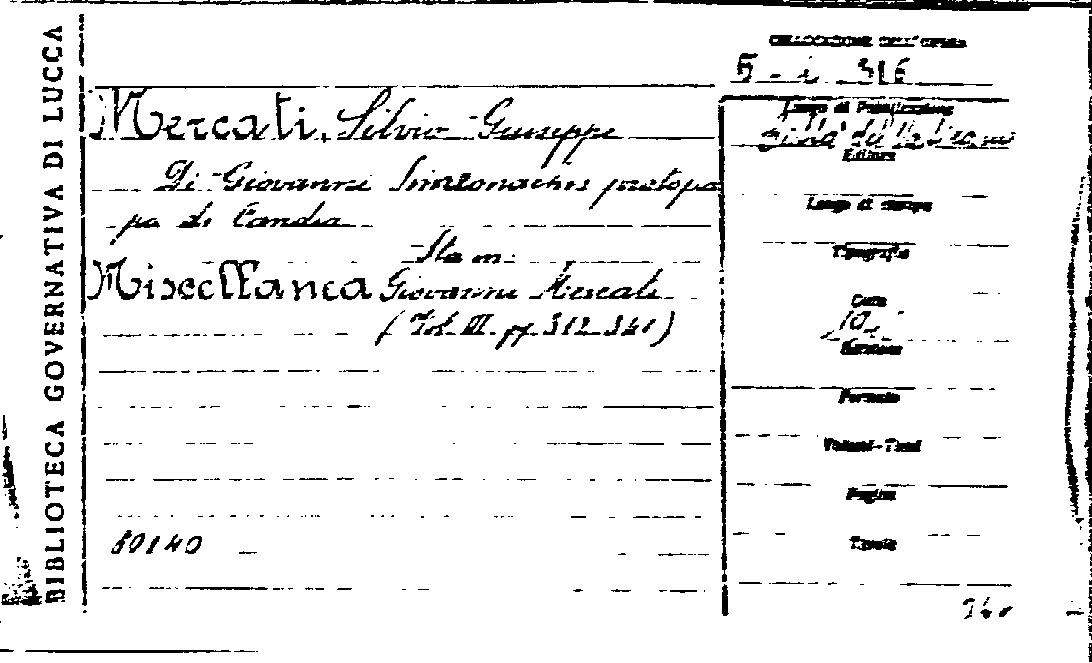 BIBLIOTECA GOVERNATIVA DI LUCCA
COLLOCAZIONE DELL'OPERA
Mercati, Silvio Giuseppe
Di Giovanni Simeonachis protopa
pa di Candia
Sta in:
Miscellanea Giovanni Mercati
(Vol. III. pp. 312-341)
80140
Luogo di Pubblicazione
Città del Vaticano
Editore
Luogo di stampa
Tipografia
Data
Edizione
Formato
Volumi-Tomi
Pagine
Tavole